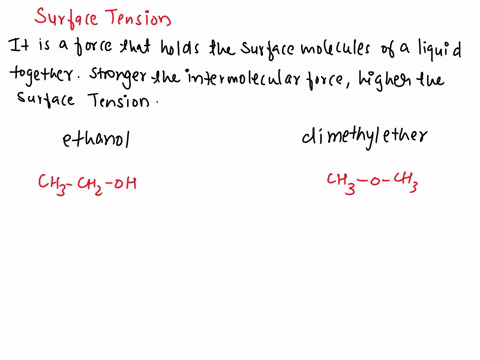 Surface Tension
It is a force that holds the surface molecules of a liquid
together. Stronger the intermolecular force, higher the
surface Tension.
ethanol dimethylether
CH₃-CH₂-OH CH₃-O-CH₃